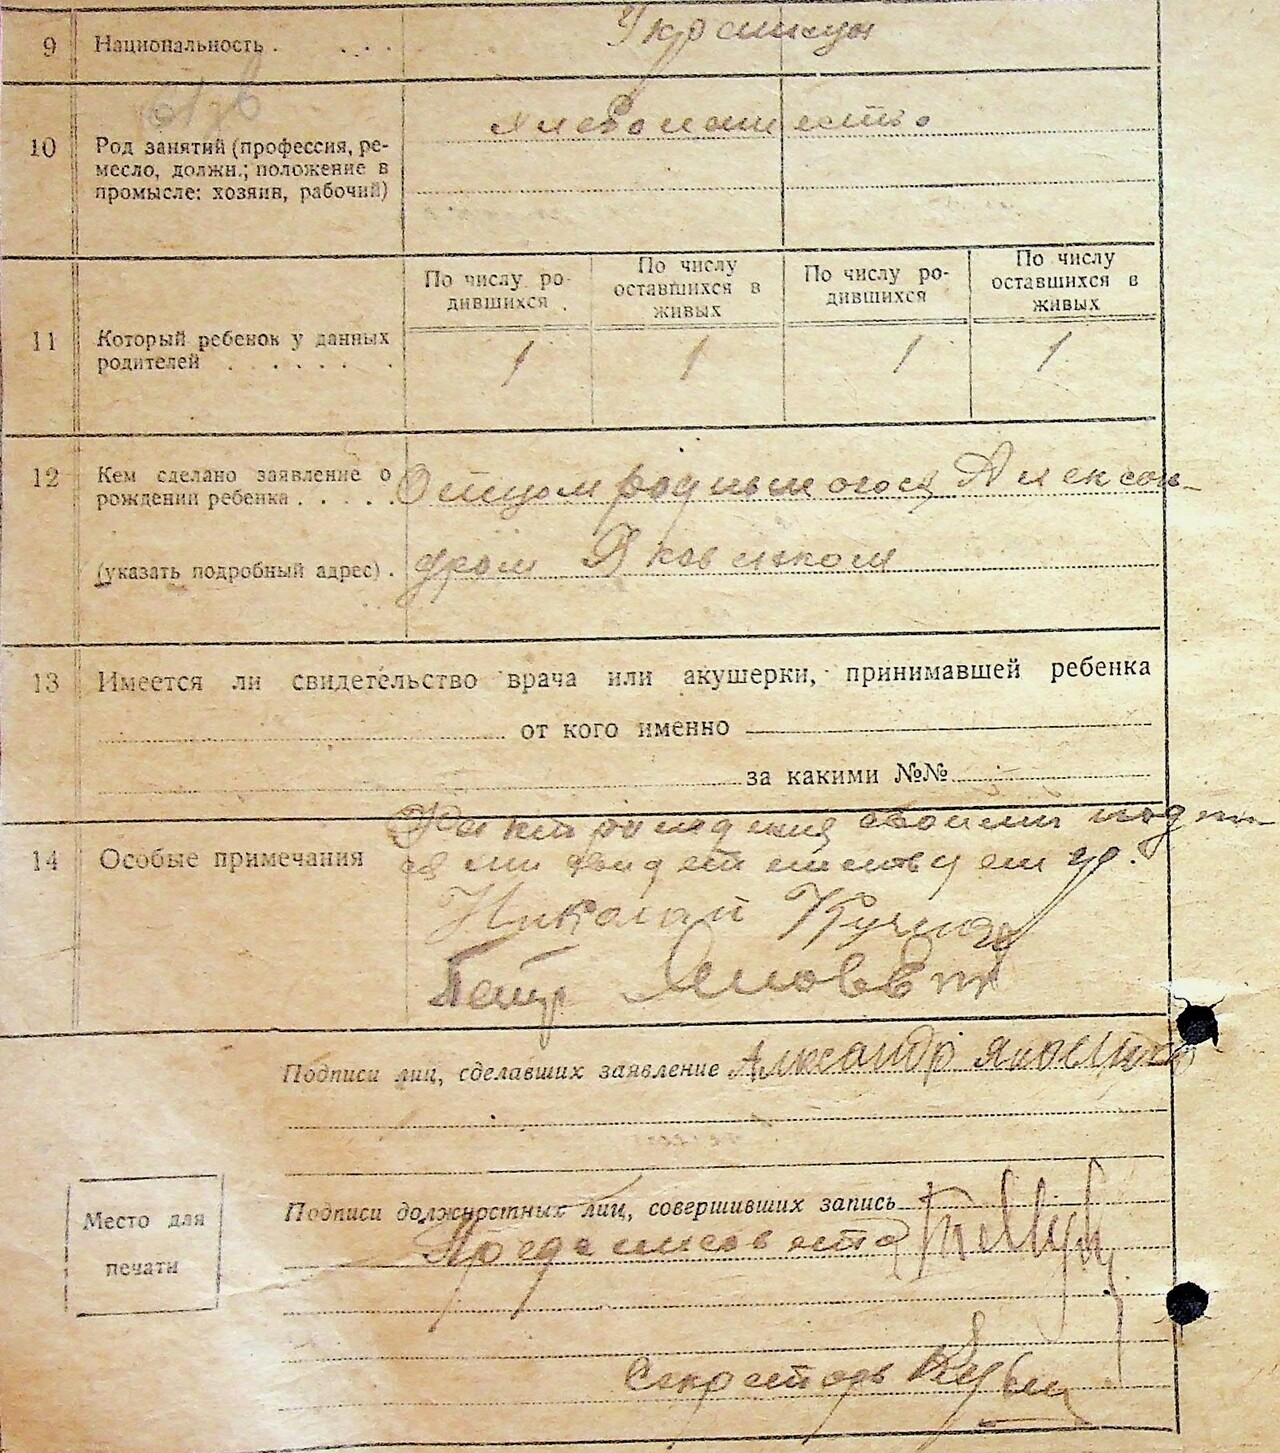 9 Национальность . . . . Украинцы
10 Род занятий (профессия, ре-
месло, должн.; положение в
промысле: хозяин, рабочий)
хлебопашество
По числу ро-
дившихся .
По числу
оставшихся в
живых
По числу ро-
дившихся
По числу
оставшихся в
живых
11 Который ребенок у данных
родителей . . . . . . .
1 1 1 1
12 Кем сделано заявление о
рождении ребенка . . . . .
Отцом родившогося Алексан-
(указать подробный адрес) . дром Яковенком
13 Имеется ли свидетельство врача или акушерки, принимавшей ребенка
от кого именно
за какими №№
Факт рождения своими подпи
14 Особые примечания
свидетельствуем гр.
Николай
Петр
Подписи лиц, сделавших заявление Александр Яковенко
Подписи должностных лиц, совершивших запись
Место для
печати
Пред сельсовета
Секретарь